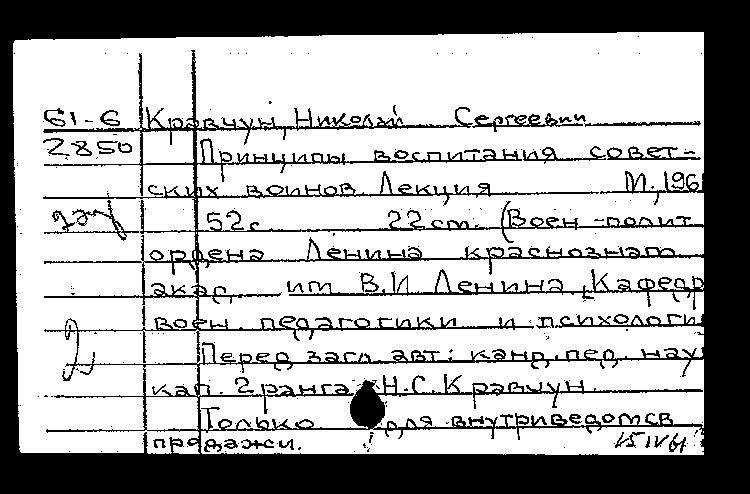 61-6 Кравчун, Николай Сергеевич
2850 Принципы воспитания совет-
ских воинов Лекция М, 1961
52с. 22ст. (Воен-полит
ордена Ленина краснознам
акад. им В.И Ленина, Кафедр
воен. педагогики и психологи
2 Перед загл. авт: канд. пед. наук
кап. 2 ранга Н.С. Кравчун.
Только для внутриведомсв
продажи. 15 IV 61